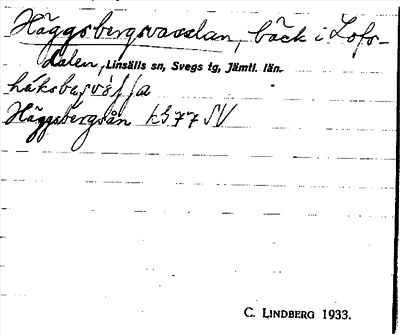 Häggsbergsvasslan, bäck i Lofs-
dalen, Linsälls sn, Svegs tg, Jämtl. län.
Häggsbergsån kb 77 SV
C. LINDBERG 1933.